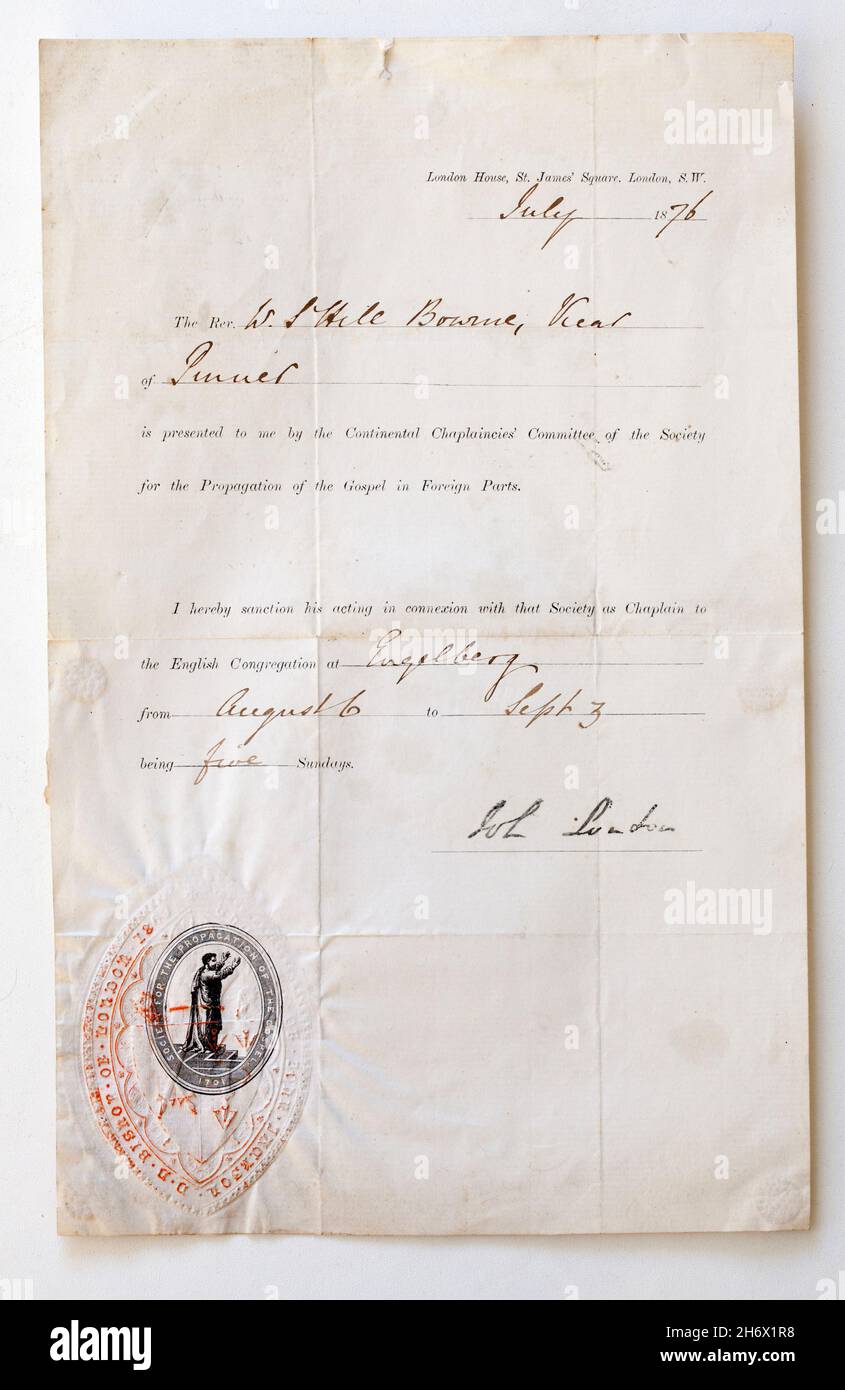 London House, St. James' Square. London, S.W.
July 1876
The Rev. W. St Hill Bourne, Vicar
of Pinner
is presented to me by the Continental Chaplaincies' Committee of the Society
for the Propagation of the Gospel in Foreign Parts.
I hereby sanction his acting in connexion with that Society as Chaplain to
the English Congregation at Engelberg
from August 6 to Sept 3
being five Sundays.
Joh London
SOCIETY FOR THE PROPAGATION OF THE GOSPEL
1701
JOHN JACKSON D.D BISHOP OF LONDON 18
alamy
alamy
Image ID: 2H6X1R8
www.alamy.com